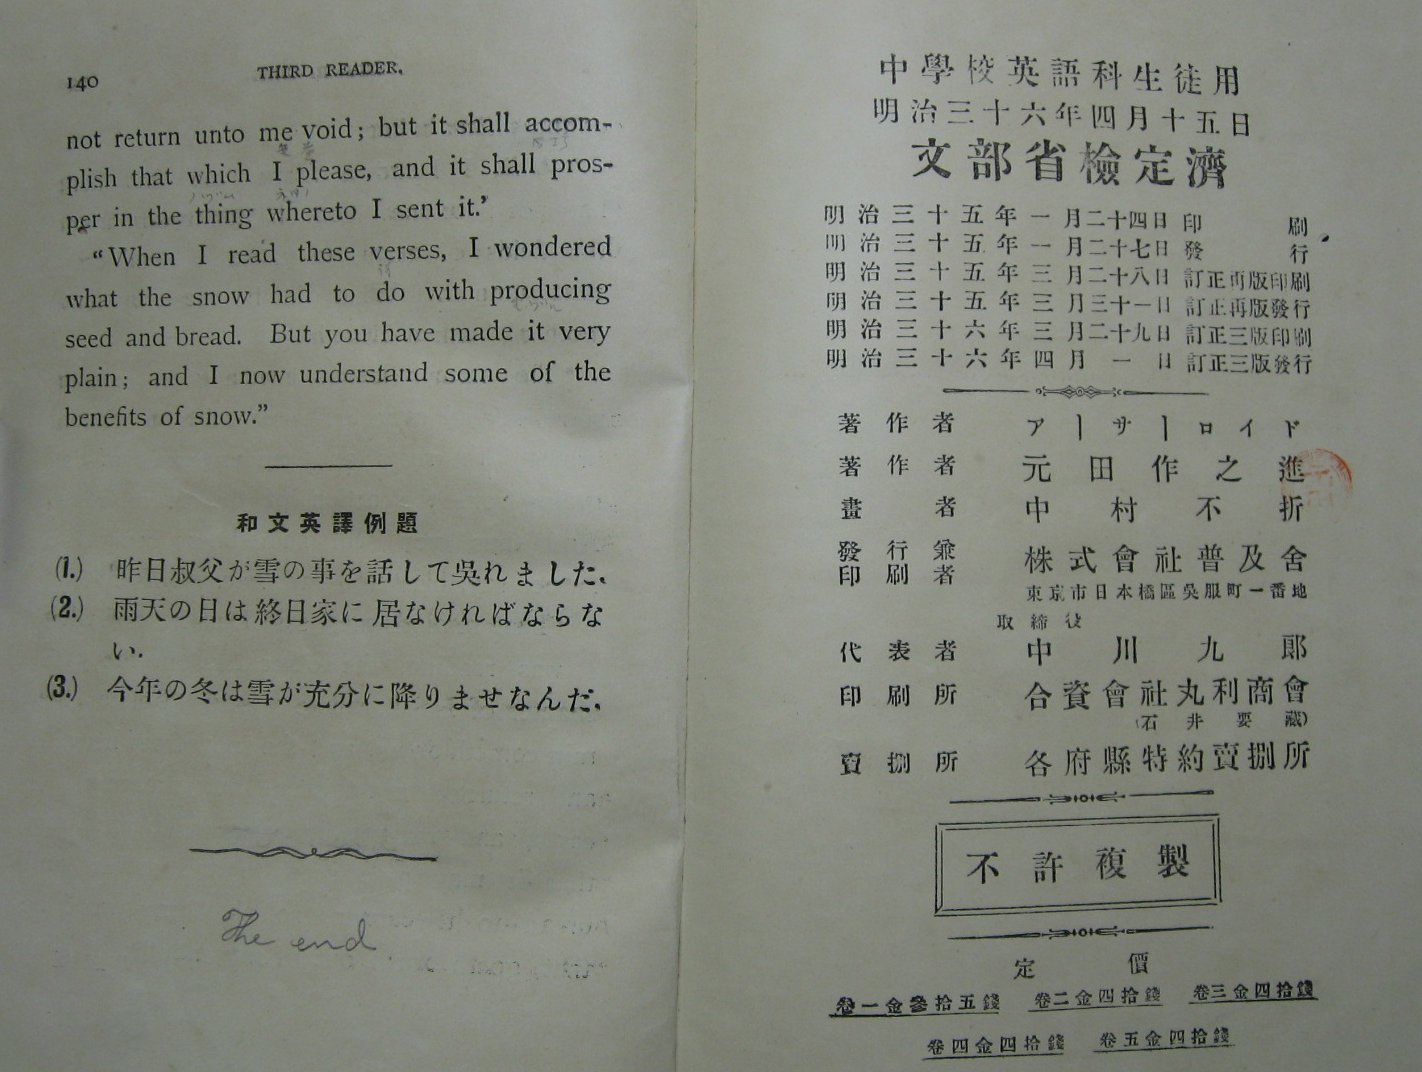 140
THIRD READER.
not return unto me void; but it shall accom-
plish that which I please, and it shall pros-
per in the thing whereto I sent it.'
"When I read these verses, I wondered
what the snow had to do with producing
seed and bread. But you have made it very
plain; and I now understand some of the
benefits of snow."
和文英譯例題
(1.) 昨日叔父が雪の事を話して吳れました、
(2.) 雨天の日は終日家に居なければならな
い.
(3.) 今年の冬は雪が充分に降りませなんだ、
The end
中學校英語科生徒用
明治三十六年四月十五日
文部省檢定濟
明治三十五年一月二十四日印刷
明治三十五年一月二十七日發行
明治三十五年三月二十八日訂正再版印刷
明治三十五年三月三十一日訂正再版發行
明治三十六年三月二十九日訂正三版印刷
明治三十六年四月一日訂正三版發行
著作者 アーサーロイド
著作者 元田作之進
畫者 中村不折
發行兼
印刷者 株式會社普及舍
東京市日本橋區吳服町一番地
取締役
代表者 中川九郎
印刷所 合資會社丸利商會
(石井要藏)
賣捌所 各府縣特約賣捌所
不許複製
定價
卷一金參拾五錢 卷二金四拾錢 卷三金四拾錢
卷四金四拾錢 卷五金四拾錢